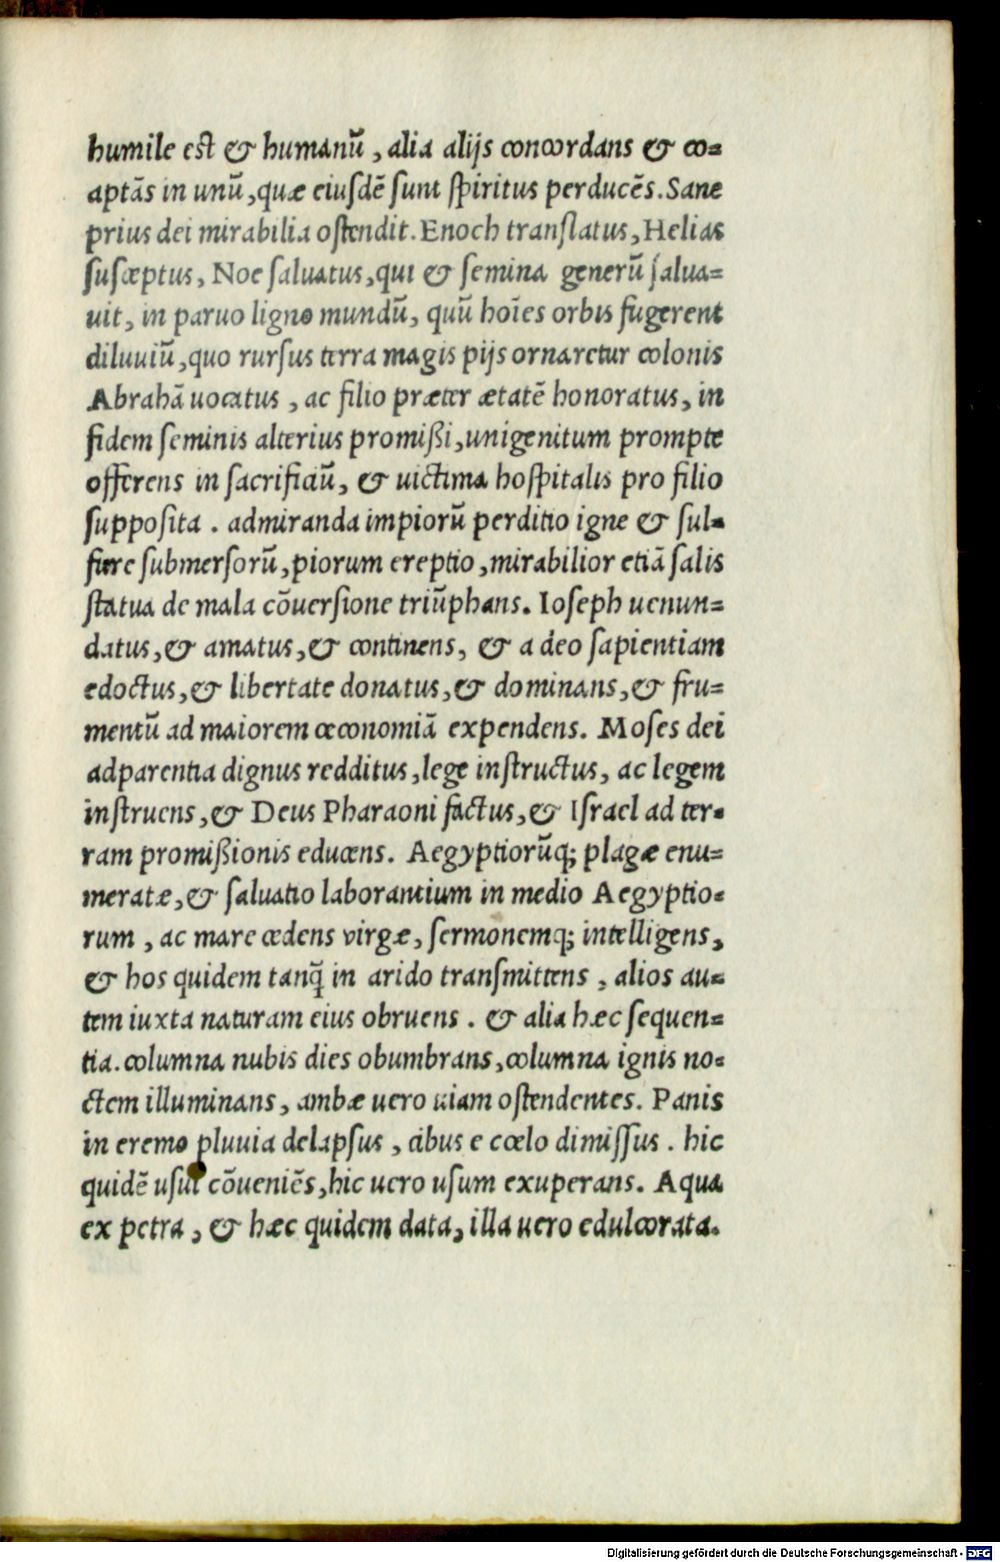 humile est & humanū, alia alijs concordans & co=
aptās in unū, quæ eiusdē sunt spiritus perducēs. Sane
prius dei mirabilia ostendit. Enoch translatus, Helias
susceptus, Noe saluatus, qui & semina generū salua=
uit, in paruo ligno mundū, quū hoīes orbis fugerent
diluuiū, quo rursus terra magis pijs ornaretur colonis
Abrahā uocatus, ac filio præter ætatē honoratus, in
fidem seminis alterius promißi, unigenitum prompte
offerens in sacrificiū, & uictima hospitalis pro filio
supposita. admiranda impiorū perditio igne & sul=
fure submersorū, piorum ereptio, mirabilior etiā salis
statua de mala cōuersione triūphans. Ioseph uenun=
datus, & amatus, & continens, & a deo sapientiam
edoctus, & libertate donatus, & dominans, & fru=
mentū ad maiorem œconomiā expendens. Moses dei
adparentia dignus redditus, lege instructus, ac legem
instruens, & Deus Pharaoni factus, & Israel ad ter=
ram promißionis educens. Aegyptiorūq; plagæ enu=
meratæ, & saluatio laborantium in medio Aegyptio=
rum, ac mare cedens virgæ, sermonemq; intelligens,
& hos quidem tanq̄ in arido transmittens, alios au=
tem iuxta naturam eius obruens. & alia hæc sequen=
tia. columna nubis dies obumbrans, columna ignis no=
ctem illuminans, ambæ uero uiam ostendentes. Panis
in eremo pluuia delapsus, cibus e cœlo dimissus. hic
quidē usui cōueniēs, hic uero usum exuperans. Aqua
ex petra, & hæc quidem data, illa uero edulcorata.
Digitalisierung gefördert durch die Deutsche Forschungsgemeinschaft - DFG